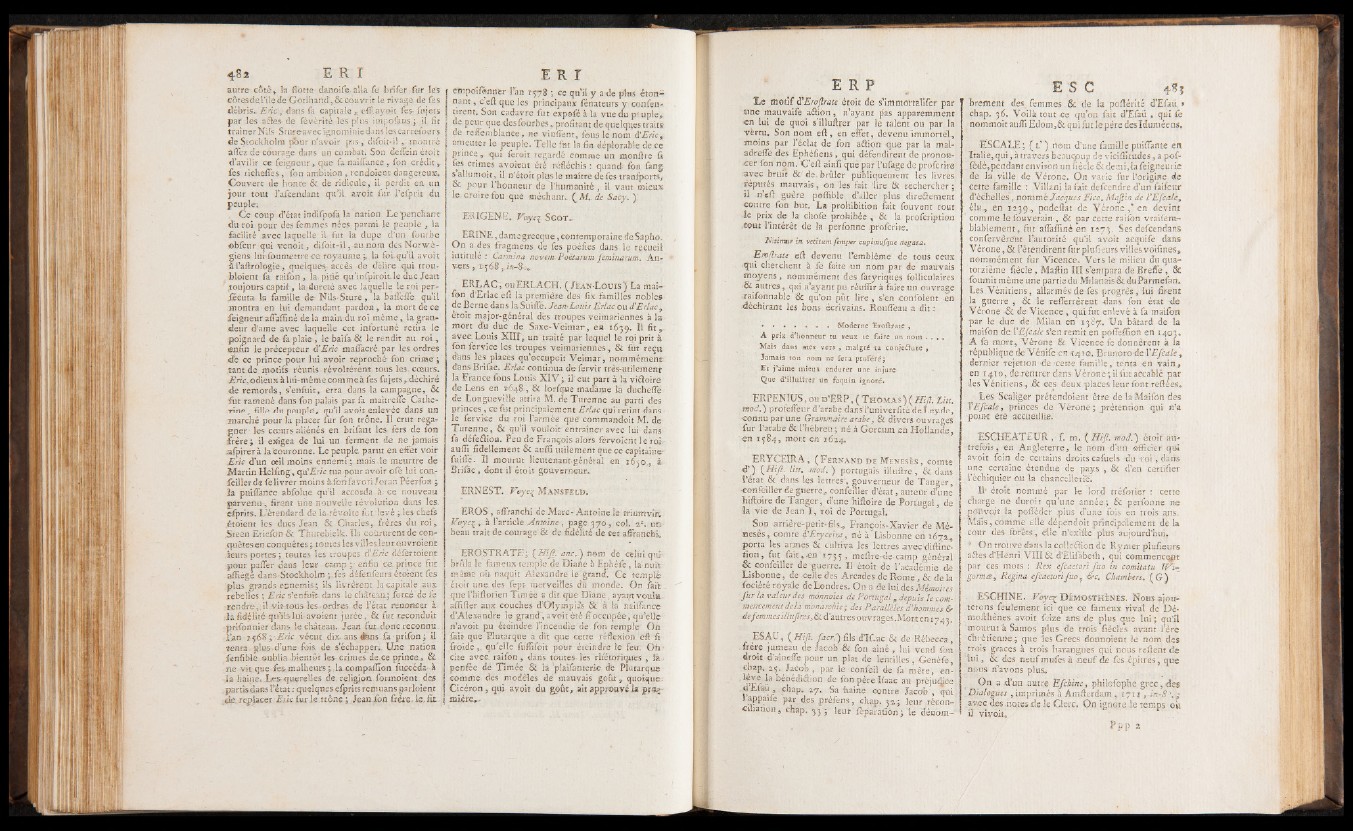 482 ERI
autre côté, la flotte danoise alla se briser sur les
côtes de l'île de Gothland, & couvrit le rivage de ses
débris. Eric, dans sa capitale, effrayoit ses sujets
par les actes de sévérité les plus imposans; il fit
traîner Nils-Sture avec ignominie dans les carrefours
de Stockholm pour n'avoir pas, disoit-il, montré
assez de courage dans un combat. Son dessein étoit
d'avilir ce seigneur, que sa naissance, son crédit,
ses richesses, son ambition, rendoient dangereux.
Couvert de honte & de ridicule, il perdit en un
jour tout l'ascendant qu'il avoit sur l'esprit du
peuple.
Ce coup d'état indisposa la nation. Le penchant
du roi pour des femmes nées parmi le peuple, la
facilité avec laquelle il fut la dupe d'un fourbe
obscur qui venoit, disoit-il, au nom des Norwé-
giens lui soumettre ce royaume; la foi qu'il avoit
à l'astrologie, quelques accès de délire qui trou-
bloient sa raison, la pitié qu'inspiroit le duc Jean
toujours captif, la dureté avec laquelle le roi per-
sécuta la famille de Nils-Sture, la bassesse qu'il
montra en lui demandant pardon, la mort de ce
seigneur assassiné de la main du roi même, la gran-
deur d'ame avec laquelle cet infortuné retira le
poignard de sa plaie, le baisa & le rendit au roi,
enfin le précepteur d'Eric massacré par les ordres
de ce prince pour lui avoir reproché son crime;
tant de motifs réunis révoltèrent tous les cœurs.
Eric, odieux à lui-même comme à ses sujets, déchiré
de remords, s'enfuit, erra dans la campagne, &
fut ramené dans son palais par sa maîtresse Cathe-
rine, fille du peuple, qu'il avoit enlevée dans un
marché pour la placer sur son trône. Il crut rega-
gner les cœurs aliénés en brisant les fers de son
frère; il exigea de lui un serment de ne jamais
aspirer à la couronne. Le peuple parut en effet voir
Eric d'un œil moins ennemi; mais le meurtre de
Martin Helsing, qu'Eric tua pour avoir osé lui con-
seiller de se livrer moins à son favori Joran Péersux;
la puissance absolue qu'il accorda à ce nouveau
parvenu, firent une nouvelle révolution dans les
esprits. L'étendard de la révolte fut levé; les chefs
étoient les ducs Jean & Charles, frères du roi,
Steen Ericson & Thurebielke. Ils coururent de con-
quêtes en conquêtes; toutes les villes leur ouvroient
leurs portes; toutes les troupes d'Eric désertoient
pour passer dans leur camp; enfin ce prince fut
assiégé dans Stockholm; ses défenseurs étoient ses
plus grands ennemis; ils livrèrent la capitale aux
rebelles; Eric s'enfuit dans le château; forcé de se
rendre, il vit tous les ordres de l'état renoncer à
la fidélité qu'ils lui avoient jurée, & fut reconduit
prisonnier dans le château. Jean fut donc reconnu
l'an 1568; Eric vécut dix ans dans sa prison; il
tenta plus d'une fois de s'échapper. Une nation
sensible oublia bientôt les crimes de ce prince, &
ne vit que ses malheurs; la compassion succéda à
la haine. Les querelles de religion formoient des
partis dans l'état: quelques esprits remuans parloient
de replacer Eric sur le trône; Jean son frère le fit
ERI
empoisonner l'an 1578; ce qu'il y a de plus éton-
nant, c'est que les principaux sénateurs y consen-
tirent. Son cadavre fut exposé à la vue du peuple,
de peur que des fourbes, profitant de quelques traits
de ressemblance, ne vinssent, sous le nom d'Eric,
ameuter le peuple. Telle fut la fin déplorable de ce
prince, qui seroit regardé comme un monstre si
ses crimes avoient été réfléchis: quand son sang
s'allumoit, il n'étoit plus le maître de ses transports,
& pour l'honneur de l'humanité, il vaut mieux
le croire fou que méchant. (M. de Sacy.)
ERIGENE. Voyez SCOT.
ERINE, dame grecque, contemporaine de Sapho.
On a des fragmens de ses poésies dans le recueil
intitulé: Carmina novem Poëtarum feminarum. An-
vers, 1568, in-8°.
ERLAC, ou ERLACH. (JEAN-LOUIS) La mai-
son d'Erlac est la première des six familles nobles
de Berne dans la Suisse. Jean-Louis Erlac ou d'Erlac,
étoit major-général des troupes veimariennes à la
mort du duc de Saxe-Veimar, en 1639. Il fit,
avec Louis XIII, un traité par lequel le roi prit à
son service les troupes veimariennes, & fut reçu
dans les places qu'occupoit Veimar, nommément
dans Brisac. Erlac continua de servir très-utilement
la France sous Louis XIV; il eut part à la victoire
de Lens en 1648, & lorsque madame la duchesse
de Longueville attira M. de Turenne au parti des
princes, ce fut principalement Erlac qui retint dans
le service du roi l'armée que commandoit M. de
Turenne, & qu'il vouloit entraîner avec lui dans
sa défection. Peu de François alors servoient le roi
aussi fidellement & aussi utilement que ce capitaine
suisse. Il mourut lieutenant-général en 1650, à
Brisac, dont il étoit gouverneur.
ERNEST. Voyez MANSFELD.
EROS, affranchi de Marc-Antoine le triumvir.
Voyez, à l'article Antoine, page 370, col. 2e. un
beau trait de courage & de fidélité de cet affranchi.
EROSTRATE; (Hist. anc.) nom de celui qui
brûla le fameux temple de Diane à Ephèse, la nuit
même où naquit Alexandre le grand. Ce temple
étoit une des sept merveilles du monde. On sait
que l'historien Timée a dit que Diane ayant voulu
assister aux couches d'Olympias & à la naissance
d'Alexandre le grand, avoit été si occupée, qu'elle
n'avoit pu éteindre l'incendie de son temple. On
sait que Plutarque a dit que cette réflexion est si
froide, qu'elle suffisoit pour éteindre le feu. On
cite avec raison, dans toutes les rhétoriques, la
pensée de Timée & la plaisanterie de Plutarque
comme des modèles de mauvais goût, quoique
Cicéron, qui avoit du goût, ait approuvé la pre-
mière.
ERP
Le motif d'Erostrate étoit de s'immortaliser par
une mauvaise action, n'ayant pas apparemment
en lui de quoi s'illustrer par le talent ou par la
vertu. Son nom est, en effet, devenu immortel,
moins par l'éclat de son action que par la mal-
adresse des Ephésiens, qui défendirent de pronon-
cer son nom. C'est ainsi que par l'usage de proscrire
avec bruit & de brûler publiquement les livres
réputés mauvais, on les fait lire & rechercher;
il n'est guère possible d'aller plus directement
contre son but. La prohibition fait souvent tout
le prix de la chose prohibée, & la proscription
tout l'intérêt de la personne proscrite.
Nitimur in vetitum semper cupimusque negata.
Erostrate est devenu l'emblême de tous ceux
qui cherchent à se faire un nom par de mauvais
moyens, nommément des satyriques folliculaires
& autres, qui n'ayant pu réussir à faire un ouvrage
raisonnable & qu'on pût lire, s'en consolent en
déchirant les bons écrivains. Rousseau a dit:
. . . . . . . Moderne Erostrate,
A prix d'honneur tu veux te faire un nom . . . .
Mais dans mes vers, malgré ta conjecture,
Jamais ton nom ne sera proféré;
Et j'aime mieux endurer une injure
Que d'illustrer un faquin ignoré.
ERPENIUS, ou D'ERP, (THOMAS) (Hist. Litt.
mod.) professeur d'arabe dans l'université de Leyde,
connu par une Grammaire arabe, & divers ouvrages
sur l'arabe & l'hébreu; né à Gorcum en Hollande,
en 1584, mort en 1624.
ERYCEIRA, (FERNAND DE MENESÈS, comte
d') (Hist. litt. mod.) portugais illustre, & dans
l'état & dans les lettres, gouverneur de Tanger,
conseiller de guerre, conseiller d'état, auteur d'une
histoire de Tanger, d'une histoire de Portugal, de
la vie de Jean I, roi de Portugal.
Son arrière-petit-fils, François-Xavier de Mé-
nesès, comte d'Eryceira, né à Lisbonne en 1672,
porta les armes & cultiva les lettres avec distinc-
tion, fut fait, en 1735, mestre-de-camp général
& conseiller de guerre. Il étoit de l'académie de
Lisbonne, de celle des Arcades de Rome, & de la
société royale de Londres. On a de lui des Mémoires
sur la valeur des monnoies de Portugal, depuis le com-
mencement de la monarchie; des Parallèles d'hommes &
de femmes illustres, & d'autres ouvrages. Mort en 1743.
ESAU, (Hist. sacr.) fils d'Isaac & de Rébecca,
frère jumeau de Jacob & son aîné, lui vend son
droit d'aînesse pour un plat de lentilles, Genèse,
chap. 25. Jacob, par le conseil de sa mère, en-
lève la bénédiction de son père Isaac au préjudice
d'Esaü, chap. 27. Sa haine contre Jacob, qui
l'appaise par des présens, chap. 32; leur récon-
ciliation, chap. 33; leur séparation; le dénom-
ESC 483
brement des femmes & de la postérité d'Esaü,
chap. 36. Voilà tout ce qu'on sait d'Esaü, qui se
nommoit aussi Edom, & qui fut le père des Iduméens.
ESCALE; (l') nom d'une famille puissante en
Italie, qui, à travers beaucoup de vicissitudes, a pos-
sédé, pendant environ un siècle & demi, la seigneurie
de la ville de Vérone. On varie sur l'origine de
cette famille: Villani la fait descendre d'un faiseur
d'échelles, nommé Jacques Fico. Mastin de l'Escale,
élu, en 1259, podestat de Vérone, en devint
comme le souverain, & par cette raison vraisem-
blablement, fut assassiné en 1273. Ses descendans
conservèrent l'autorité qu'il avoit acquise dans
Vérone, & l'étendirent sur plusieurs villes voisines,
nommément sur Vicence. Vers le milieu du qua-
torzième siècle, Mastin III s'empara de Bresse, &
soumit même une partie du Milanais & du Parmesan.
Les Vénitiens, allarmés de ses progrès, lui firent
la guerre, & le resserrèrent dans son état de
Vérone & de Vicence, qui fut enlevé à sa maison
par le duc de Milan en 1387. Un bâtard de la
maison de l'Escale s'en remit en possession en 1403.
A sa mort, Vérone & Vicence se donnèrent à la
république de Venise en 1410. Brunoro de l'Escale,
dernier rejetton de cette famille, tenta en vain,
en 1410, de rentrer dans Vérone; il fut accablé par
les Vénitiens, & ces deux places leur sont restées.
Les Scaliger prétendoient être de la Maison des
l'Escale, princes de Vérone; prétention qui n'a
point été accueillie.
ESCHEATEUR, s. m. (Hist. mod.) étoit au-
trefois, en Angleterre, le nom d'un officier qui
avoit soin de certains droits casuels du roi, dans
une certaine étendue de pays, & d'en certifier
l'échiquier ou la chancellerie.
Il étoit nommé par le lord trésorier: cette
charge ne duroit qu'une année; & personne ne
pouvoit la posséder plus d'une fois en trois ans.
Mais, comme elle dépendoit principalement de la
cour des forêts, elle n'existe plus aujourd'hui.
On trouve dans la collection de Rymer plusieurs
actes d'Henri VIII & d'Elisabeth, qui commencent
par ces mots: Rex escaetori suo in comitatu Wi-
gorniæ, Regina escaetori suo, &c. Chambers. (G)
ESCHINE. Voyez DÉMOSTHÈNES. Nous ajou-
terons seulement ici que ce fameux rival de Dé-
mosthènes avoit seize ans de plus que lui; qu'il
mourut à Samos plus de trois siècles avant l'ère
chrétienne; que les Grecs donnoient le nom des
trois graces à trois harangues qui nous restent de
lui, & des neuf muses à neuf de ses épîtres, que
nous n'avons plus.
On a d'un autre Eschine, philosophe grec, des
Dialogues, imprimés à Amsterdam, 1711, in-8°.
avec des notes de le Clerc. On ignore le temps où
il vivoit.
Ppp 2